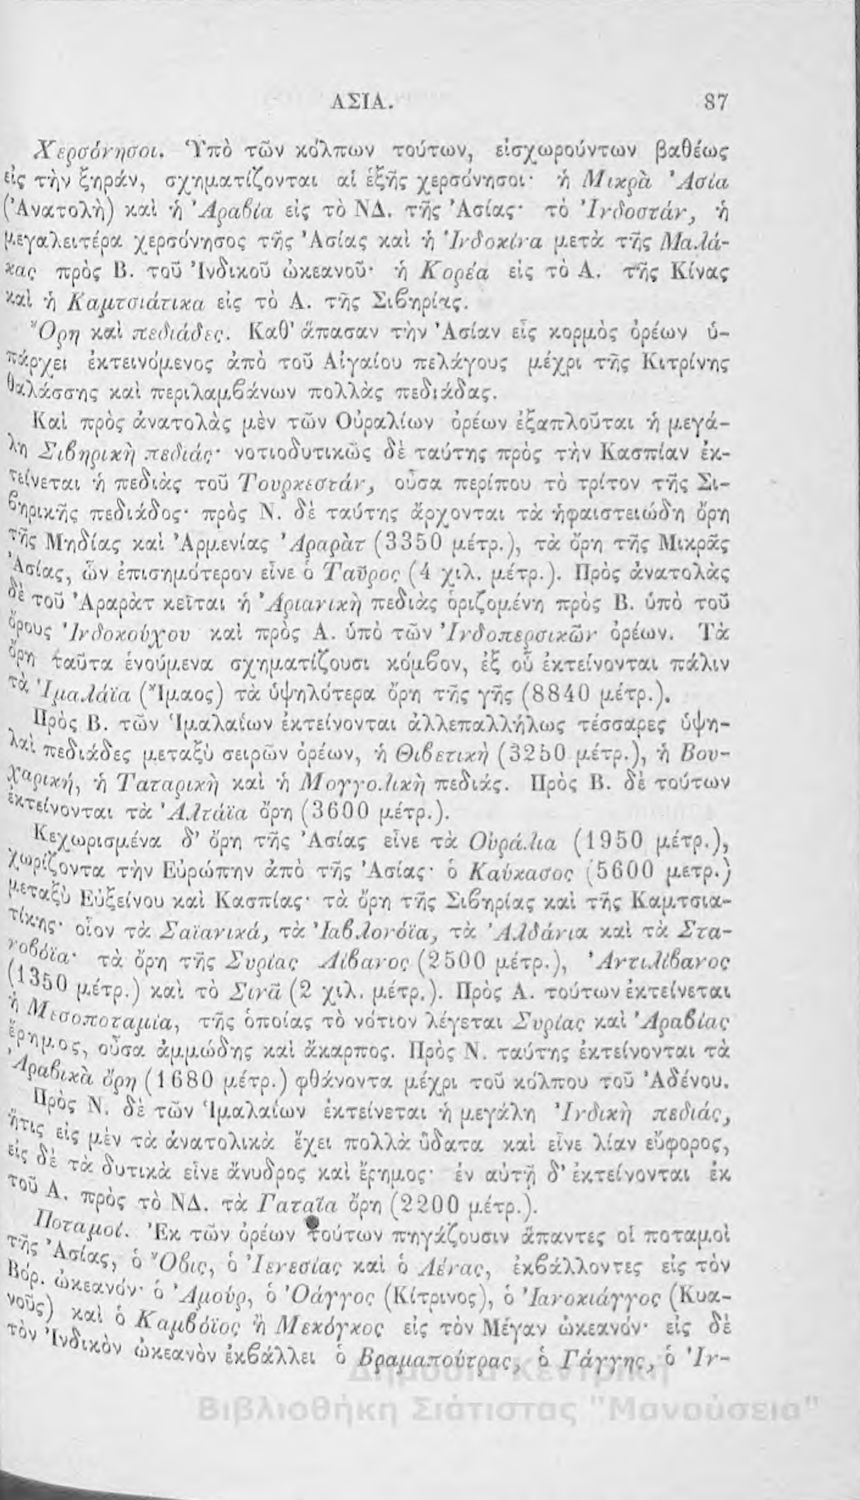 ΑΣΙΑ. 87
Χερσόνησοι. Ὑπὸ τῶν κόλπων τούτων, εἰσχωρούντων βαθέως
εἰς τὴν ξηράν, σχηματίζονται αἱ ἑξῆς χερσόνησοι· ἡ Μικρὰ Ἀσία
(Ἀνατολὴ) καὶ ἡ Ἀραβία εἰς τὸ ΝΔ. τῆς Ἀσίας· τὸ Ἰνδοστάν, ἡ
μεγαλειτέρα χερσόνησος τῆς Ἀσίας καὶ ἡ Ἰνδοκίνα μετὰ τῆς Μαλά-
κας πρὸς Β. τοῦ Ἰνδικοῦ ὠκεανοῦ· ἡ Κορέα εἰς τὸ Α. τῆς Κίνας
καὶ ἡ Καμτσιάτικα εἰς τὸ Α. τῆς Σιβηρίας.
Ὄρη καὶ πεδιάδες. Καθ' ἅπασαν τὴν Ἀσίαν εἷς κορμὸς ὀρέων ὑ-
πάρχει ἐκτεινόμενος ἀπὸ τοῦ Αἰγαίου πελάγους μέχρι τῆς Κιτρίνης
θαλάσσης καὶ περιλαμβάνων πολλὰς πεδιάδας.
Καὶ πρὸς ἀνατολὰς μὲν τῶν Οὐραλίων ὀρέων ἐξαπλοῦται ἡ μεγά-
λη Σιβηρικὴ πεδιάς· νοτιοδυτικῶς δὲ ταύτης πρὸς τὴν Κασπίαν ἐκ-
τείνεται ἡ πεδιὰς τοῦ Τουρκεστάν, οὖσα περίπου τὸ τρίτον τῆς Σι-
βηρικῆς πεδιάδος· πρὸς Ν. δὲ ταύτης ἄρχονται τὰ ἡφαιστειώδη ὄρη
τῆς Μηδίας καὶ Ἀρμενίας Ἀραρὰτ (3350 μέτρ.), τὰ ὄρη τῆς Μικρᾶς
Ἀσίας, ὧν ἐπισημότερον εἶνε ὁ Ταῦρος (4 χιλ. μέτρ.). Πρὸς ἀνατολὰς
δὲ τοῦ Ἀραρὰτ κεῖται ἡ Ἀριανικὴ πεδιὰς ὁριζομένη πρὸς Β. ὑπὸ τοῦ
ὄρους Ἰνδοκούχου καὶ πρὸς Α. ὑπὸ τῶν Ἰνδοπερσικῶν ὀρέων. Τὰ
ὄρη ταῦτα ἑνούμενα σχηματίζουσι κόμβον, ἐξ οὗ ἐκτείνονται πάλιν
τὰ Ἱμαλάϊα (Ἴμαος) τὰ ὑψηλότερα ὄρη τῆς γῆς (8840 μέτρ.).
Πρὸς Β. τῶν Ἱμαλαΐων ἐκτείνονται ἀλλεπαλλήλως τέσσαρες ὑψη-
λαὶ πεδιάδες μεταξὺ σειρῶν ὀρέων, ἡ Θιβετικὴ (3250 μέτρ.), ἡ Βου-
χαρική, ἡ Ταταρικὴ καὶ ἡ Μογγολικὴ πεδιάς. Πρὸς Β. δὲ τούτων
ἐκτείνονται τὰ Ἀλτάϊα ὄρη (3600 μέτρ.).
Κεχωρισμένα δ' ὄρη τῆς Ἀσίας εἶνε τὰ Οὐράλια (1950 μέτρ.),
χωρίζοντα τὴν Εὐρώπην ἀπὸ τῆς Ἀσίας· ὁ Καύκασος (5600 μετρ.)
μεταξὺ Εὐξείνου καὶ Κασπίας· τὰ ὄρη τῆς Σιβηρίας καὶ τῆς Καμτσια-
τίκης· οἷον τὰ Σαϊανικά, τὰ Ἰαβλονόϊα, τὰ Ἀλδάνια καὶ τὰ Στα-
νοβόϊα· τὰ ὄρη τῆς Συρίας Λίβανος (2500 μέτρ.), Ἀντιλίβανος
(1350 μέτρ.) καὶ τὸ Σινᾶ (2 χιλ. μέτρ.). Πρὸς Α. τούτων ἐκτείνεται
ἡ Μεσοποταμία, τῆς ὁποίας τὸ νότιον λέγεται Συρίας καὶ Ἀραβίας
ἔρημος, οὖσα ἀμμώδης καὶ ἄκαρπος. Πρὸς Ν. ταύτης ἐκτείνονται τὰ
Ἀραβικὰ ὄρη (1680 μέτρ.) φθάνοντα μέχρι τοῦ κόλπου τοῦ Ἀδένου.
Πρὸς Ν. δὲ τῶν Ἱμαλαΐων ἐκτείνεται ἡ μεγάλη Ἰνδικὴ πεδιάς,
ἥτις εἰς μὲν τὰ ἀνατολικὰ ἔχει πολλὰ ὕδατα καὶ εἶνε λίαν εὔφορος,
εἰς δὲ τὰ δυτικὰ εἶνε ἄνυδρος καὶ ἔρημος· ἐν αὐτῇ δ' ἐκτείνονται ἐκ
τοῦ Α. πρὸς τὸ ΝΔ. τὰ Γαταῖα ὄρη (2200 μέτρ.).
Ποταμοί. Ἐκ τῶν ὀρέων τούτων πηγάζουσιν ἅπαντες οἱ ποταμοὶ
τῆς Ἀσίας, ὁ Ὄβις, ὁ Ἰενεσίας καὶ ὁ Λένας, ἐκβάλλοντες εἰς τὸν
Βόρ. ὠκεανόν· ὁ Ἀμούρ, ὁ Ὀάγγος (Κίτρινος), ὁ Ἰανοκιάγγος (Κυα-
νοῦς) καὶ ὁ Καμβόϊος ἢ Μεκόγκος εἰς τὸν Μέγαν ὠκεανόν· εἰς δὲ
τὸν Ἰνδικὸν ὠκεανὸν ἐκβάλλει ὁ Βραμαπούτρας, ὁ Γάγγης, ὁ Ἰν-
Δημόσια Κεντρική
Βιβλιοθήκη Σιάτιστας "Μανούσεια"